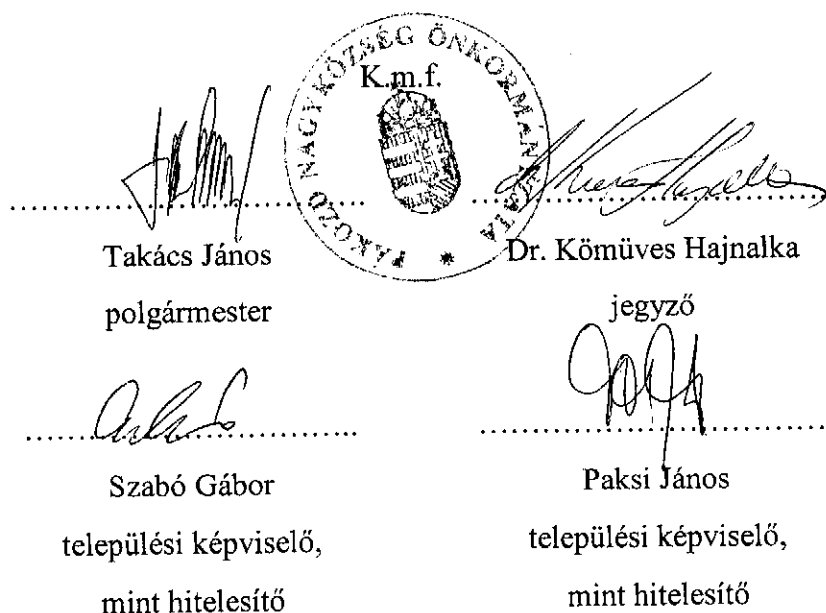 PÁKOZD NAGYKÖZSÉG ÖNKORMÁNYZATA *
K.m.f.
Takács János
polgármester
Dr. Kömüves Hajnalka
jegyző
Szabó Gábor
települési képviselő,
mint hitelesítő
Paksi János
települési képviselő,
mint hitelesítő